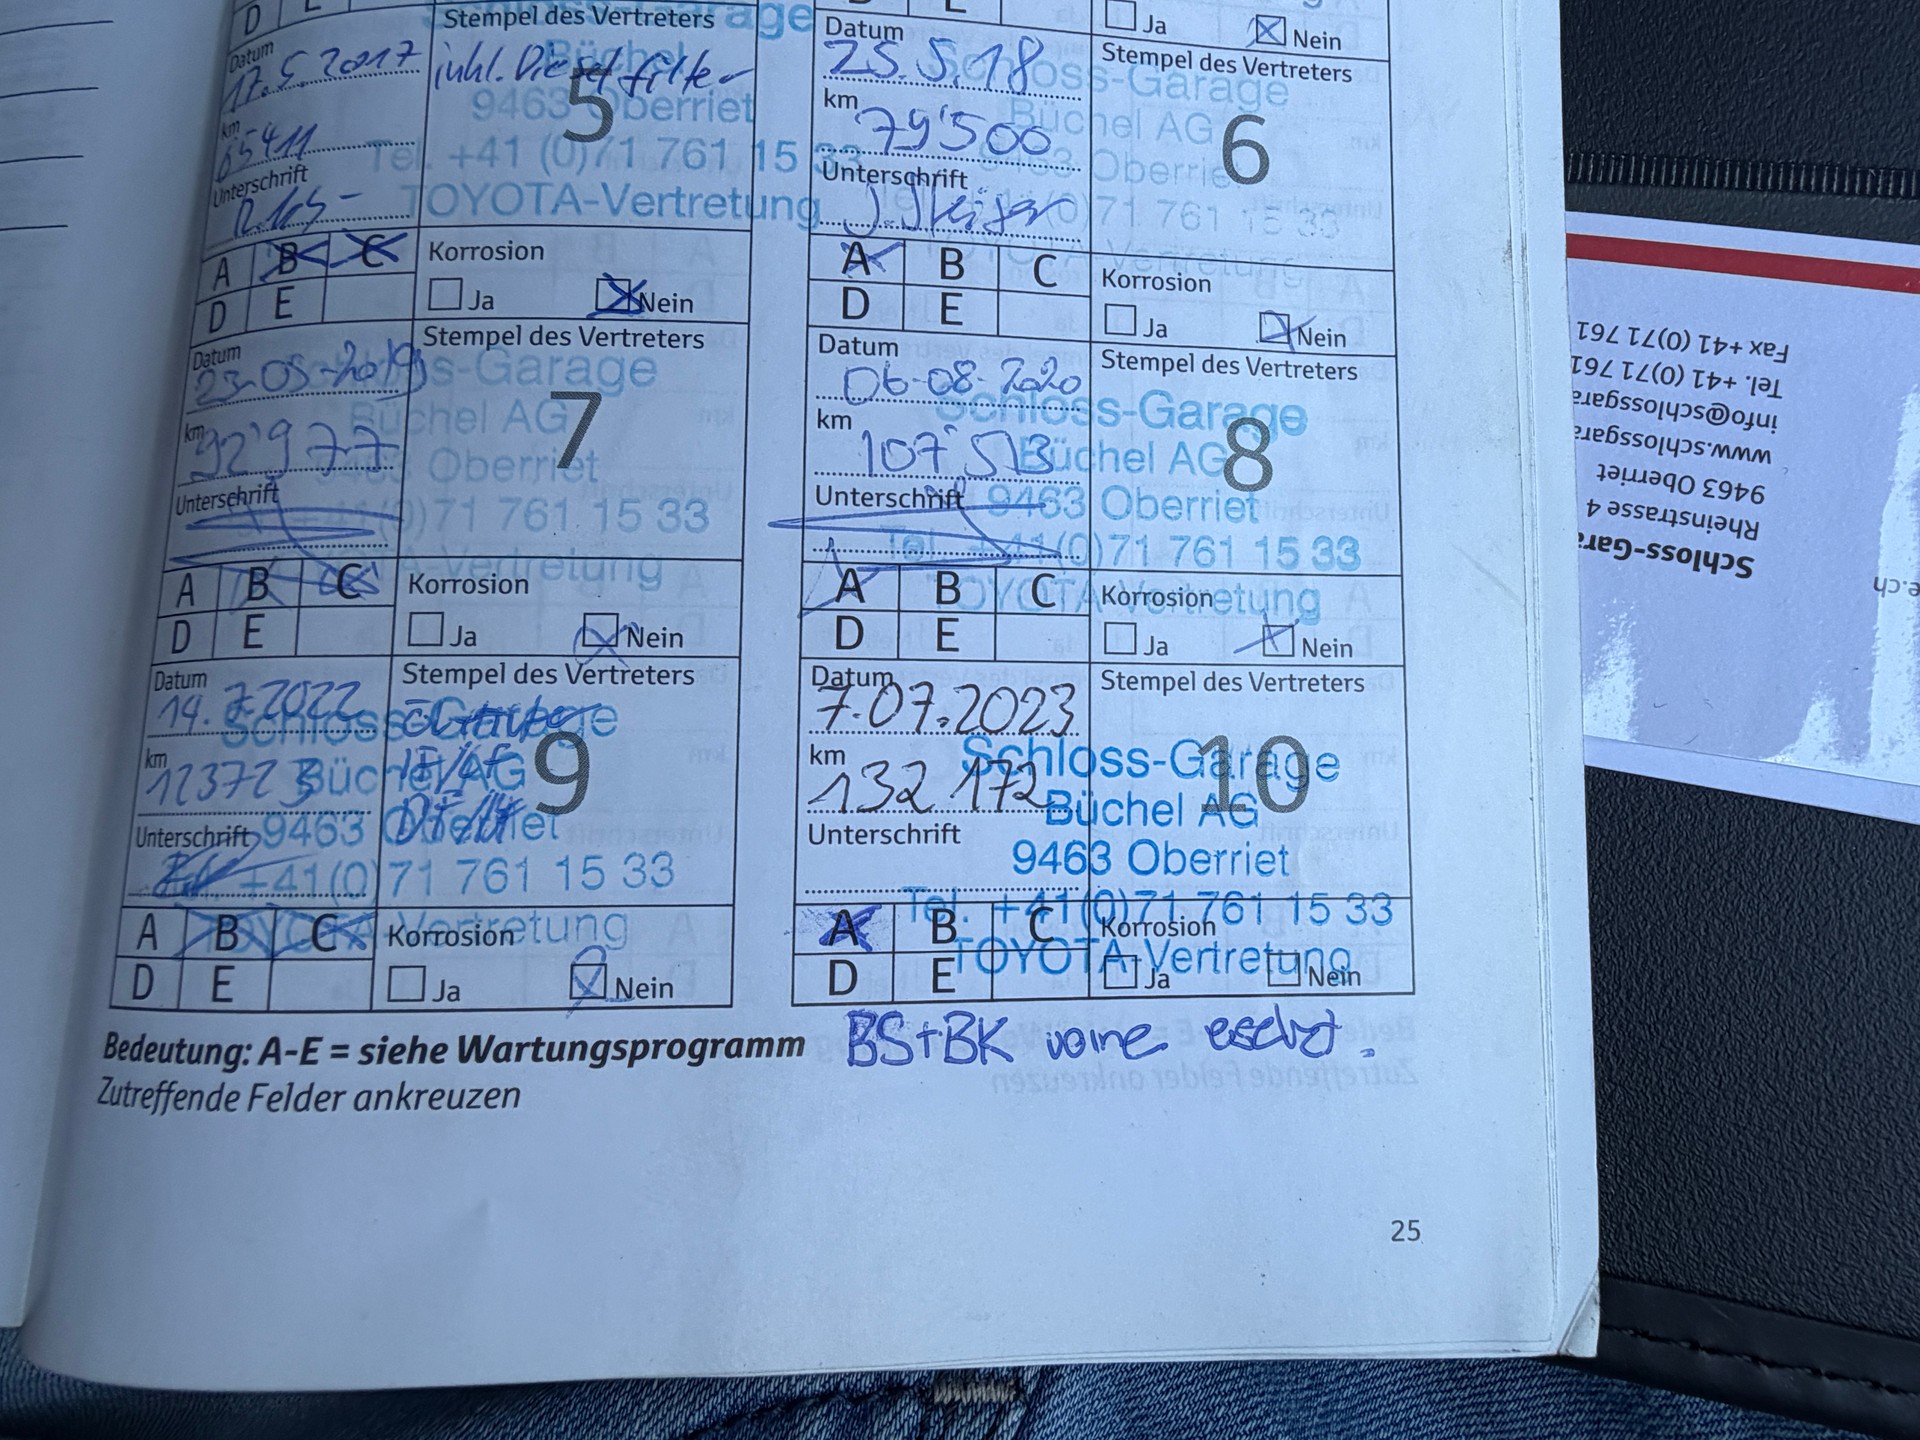 D
Stempel des Vertreters
Schloss-Garage
Datum
17.5.2017
inkl. Dieselfilter
Büchel
5
9463 Oberriet
km
65411
Tel. +41 (0)71 761 15 33
Unterschrift
TOYOTA-Vertretung
A B C
Korrosion
D E
Ja Nein
Ja Nein
Datum
25.5.18
Stempel des Vertreters
Schloss-Garage
km
79'500
Büchel AG
6
9463 Oberriet
Unterschrift
(0)71 761 15 33
TOYOTA-Vertretung
A B C
Korrosion
D E
Ja Nein
Datum
23-05-2019
Stempel des Vertreters
Schloss-Garage
km
92'977
Büchel AG
7
9463 Oberriet
Unterschrift
(0)71 761 15 33
TOYOTA-Vertretung
A B C
Korrosion
D E
Ja Nein
Datum
06-08-2020
Stempel des Vertreters
Schloss-Garage
km
107'513
Büchel AG
8
Unterschrift
9463 Oberriet
Tel. +41(0)71 761 15 33
TOYOTA-Vertretung
A B C
Korrosion
D E
Ja Nein
Datum
14.7.2022
Stempel des Vertreters
Schloss-Garage
km
123723
Büchel AG
9
Unterschrift
9463 Oberriet
+41(0)71 761 15 33
TOYOTA-Vertretung
A B C
Korrosion
D E
Ja Nein
Datum
7.07.2023
Stempel des Vertreters
km
132.172
Schloss-Garage
10
Büchel AG
Unterschrift
9463 Oberriet
Tel. +41(0)71 761 15 33
TOYOTA-Vertretung
A B C
Korrosion
D E
Ja Nein
Bedeutung: A-E = siehe Wartungsprogramm
BS+BK vorne
Zutreffende Felder ankreuzen
25
Schloss-Gara
Rheinstrasse 4
9463 Oberriet
www.schlossgara
info@schlossgara
Tel. +41 (0)71 761
Fax +41 (0)71 761
e.ch